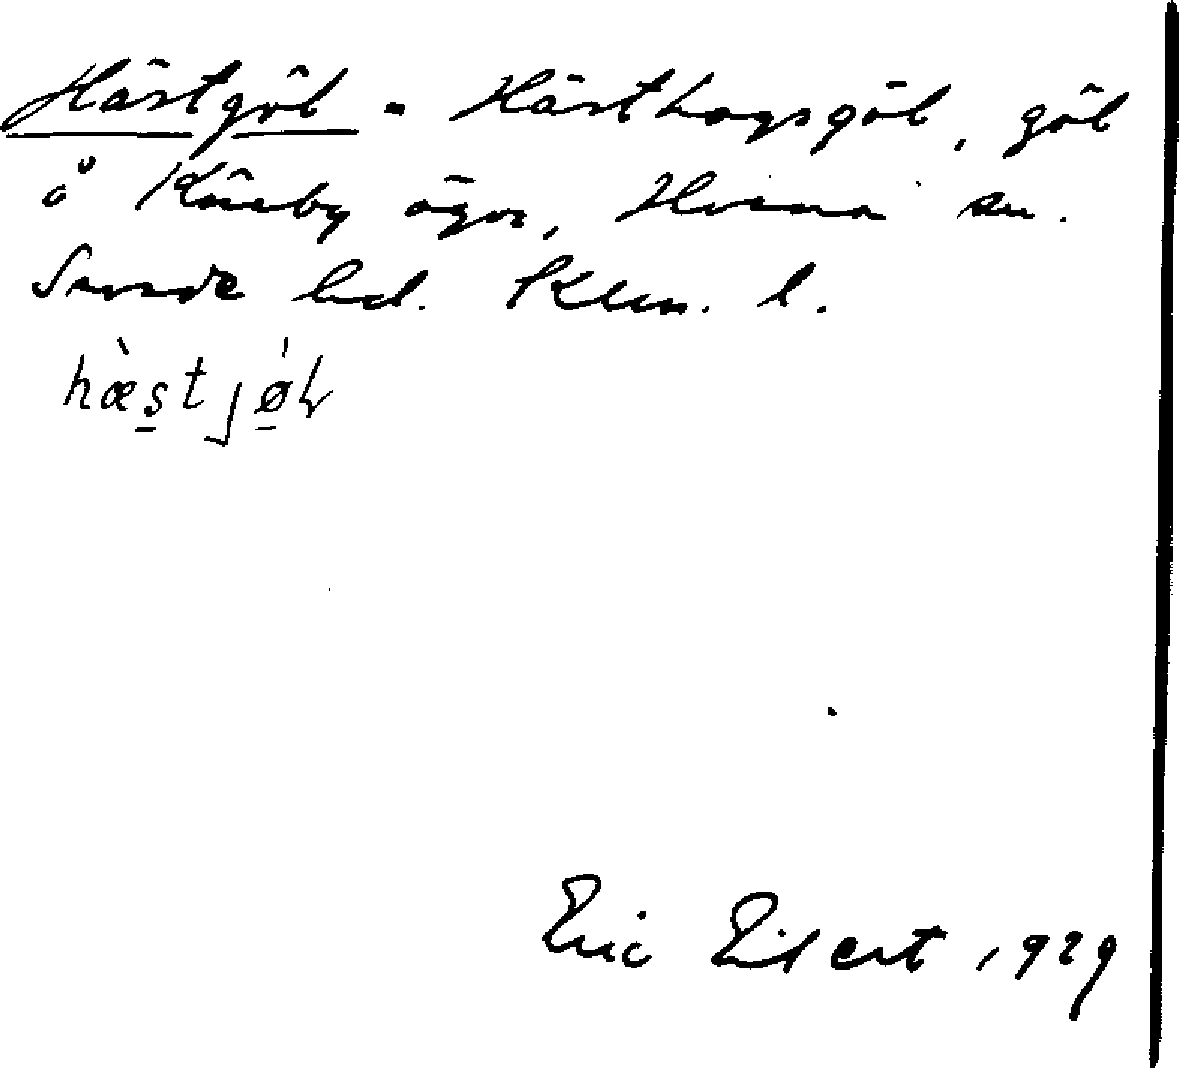 Hästgöl = Hästhagsgöl, göl
å Kåreby ägor, Hvena sn.
Sevede hd. Klm. l.
hæ̀s̱tjǿ̱ɫ
Eric Elfert 1929